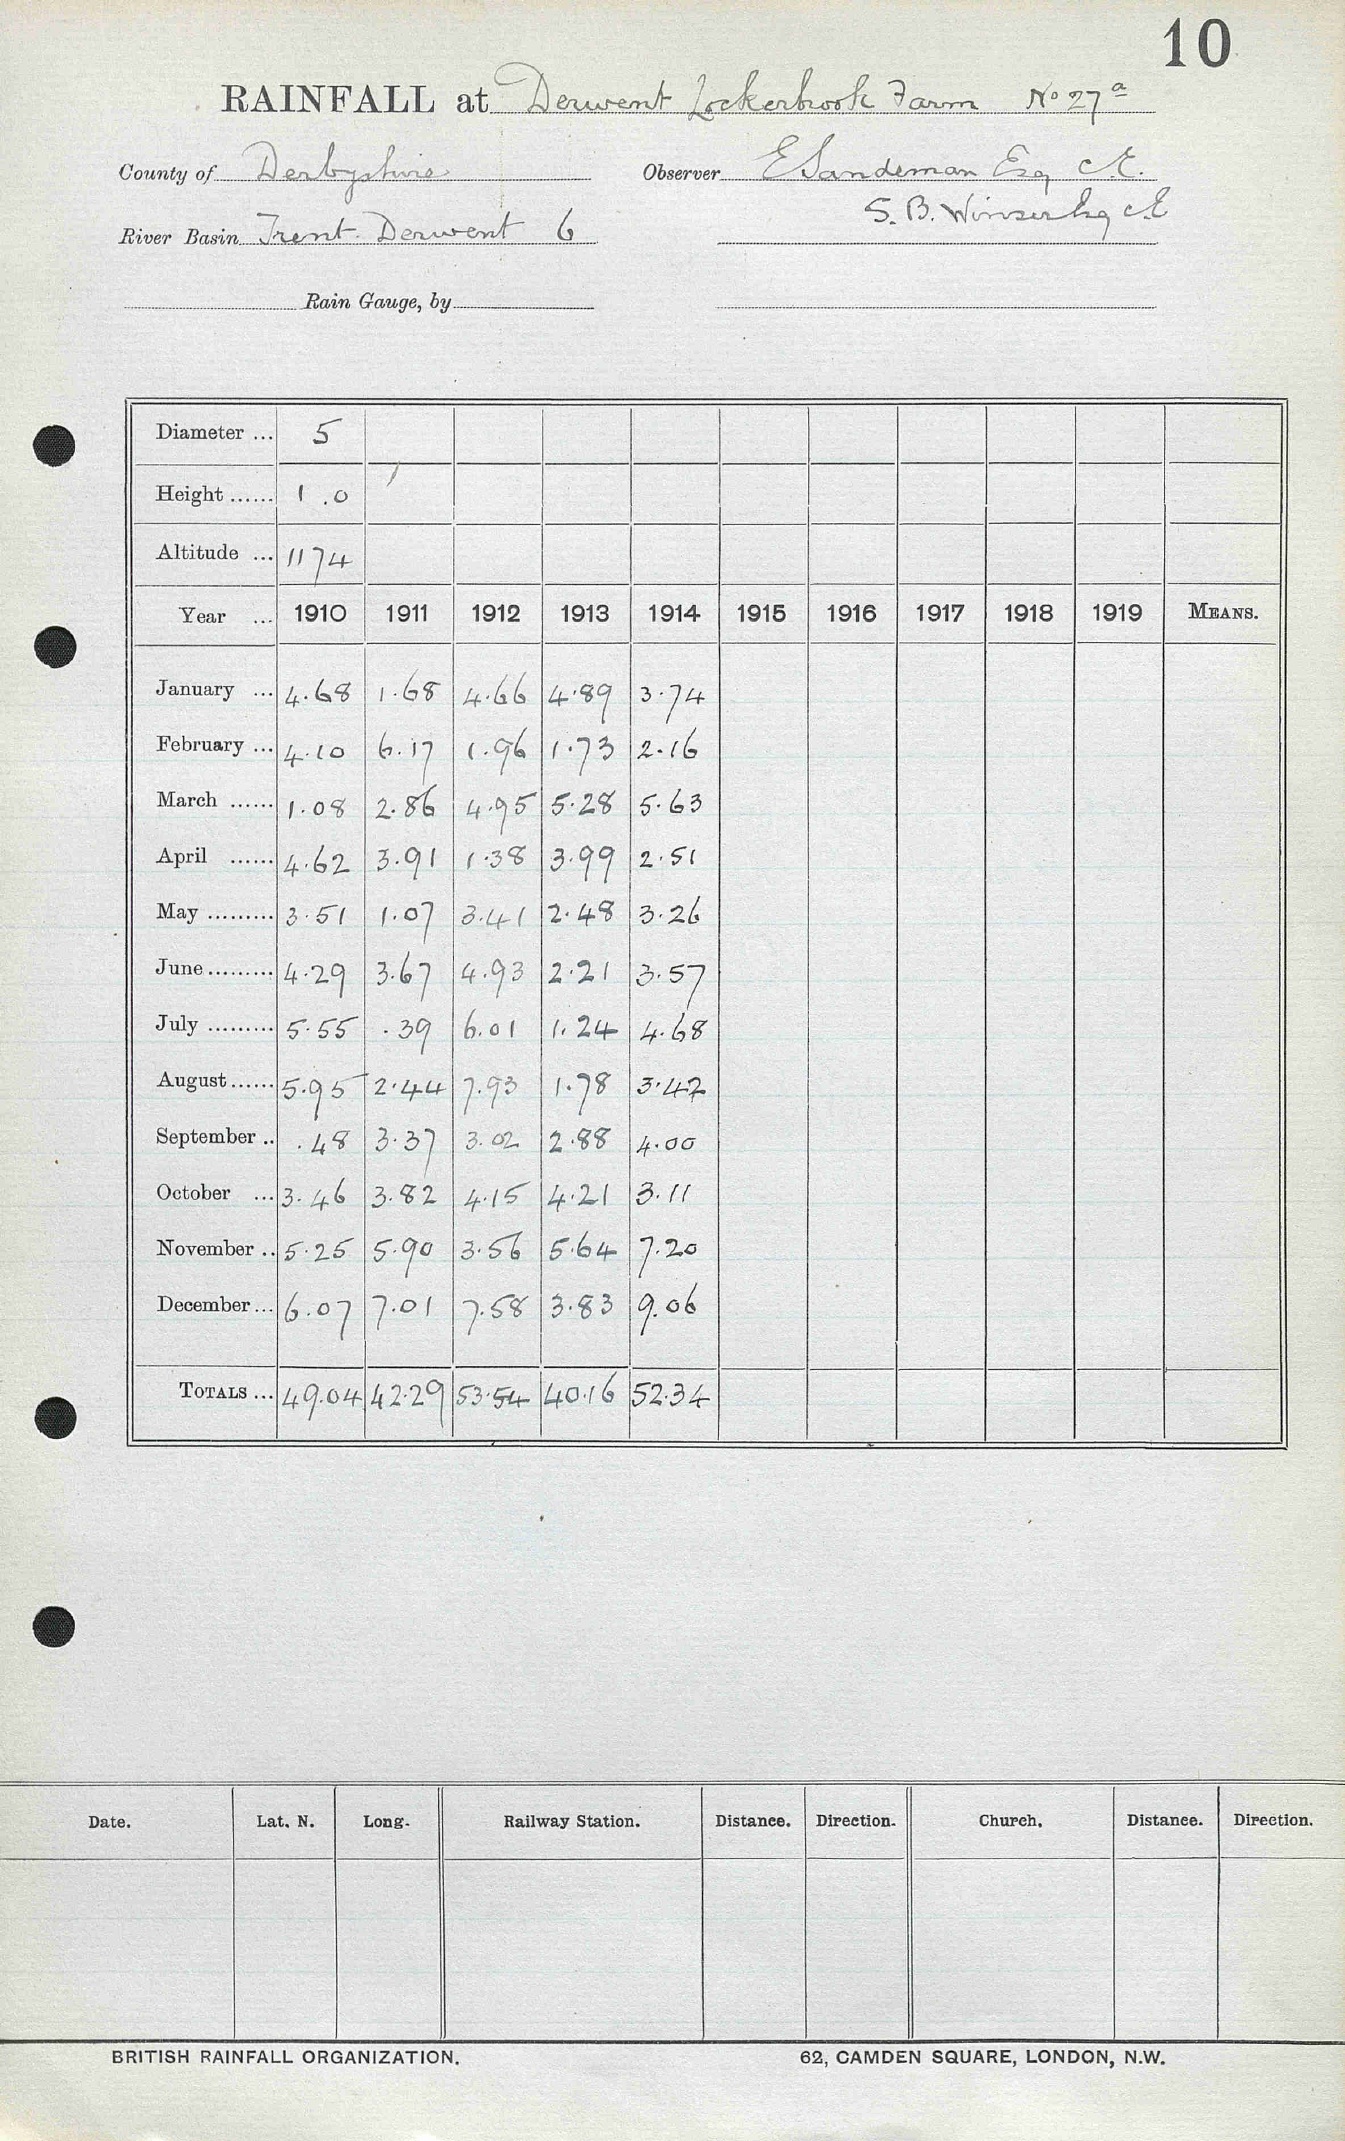 10
RAINFALL at Derwent Lockerbrook Farm No 27a
County of Derbyshire Observer E Sandeman Esq C.E.
S. B. Winser Esq C.E
River Basin Trent. Derwent 6
Rain Gauge, by
Diameter ... 5
Height ...... 1.0
Altitude ... 1174
Year ... 1910 1911 1912 1913 1914 1915 1916 1917 1918 1919 MEANS.
January ... 4.68 1.68 4.66 4.89 3.74
February ... 4.10 6.17 1.96 1.73 2.16
March ...... 1.08 2.86 4.95 5.28 5.63
April ...... 4.62 3.91 1.38 3.99 2.51
May ......... 3.51 1.07 3.41 2.48 3.26
June ......... 4.29 3.67 4.93 2.21 3.57
July ......... 5.55 .39 6.01 1.24 4.68
August ...... 5.95 2.44 7.93 1.78 3.42
September .. .48 3.37 3.02 2.88 4.00
October ... 3.46 3.82 4.15 4.21 3.11
November .. 5.25 5.90 3.56 5.64 7.20
December ... 6.07 7.01 7.58 3.83 9.06
TOTALS ... 49.04 42.29 53.54 40.16 52.34
Date. Lat. N. Long. Railway Station. Distance. Direction. Church. Distance. Direction.
BRITISH RAINFALL ORGANIZATION. 62, CAMDEN SQUARE, LONDON, N.W.